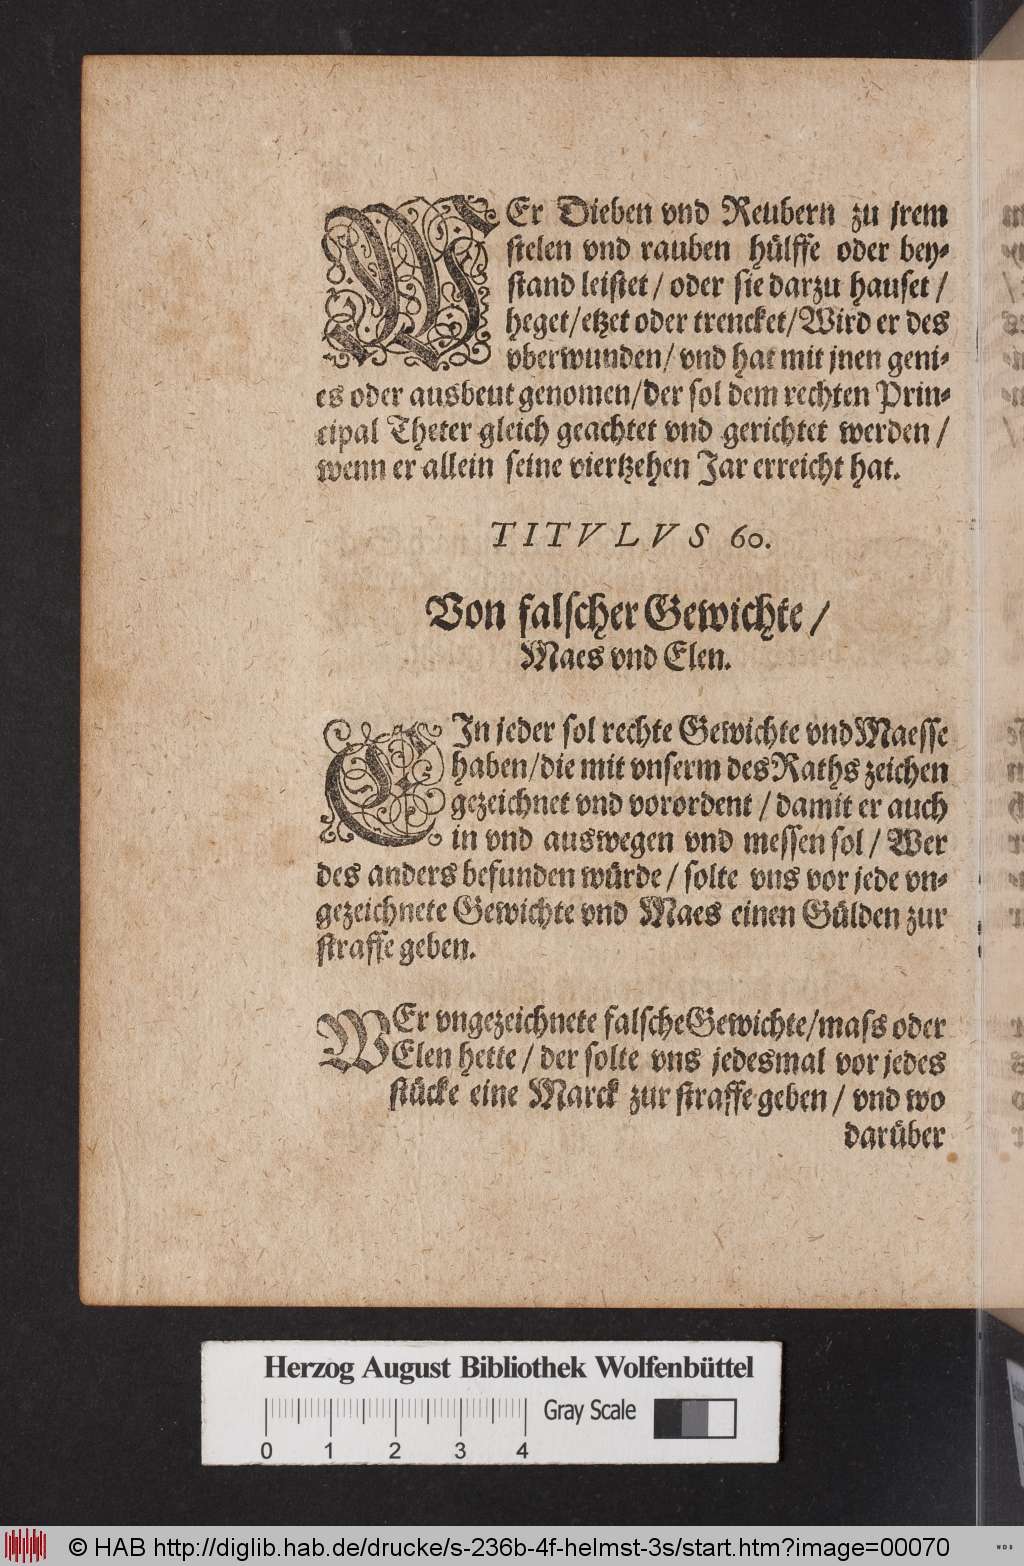 WEr Dieben vnd Reubern zu jrem
stelen vnd rauben hülffe oder bey-
stand leistet / oder sie darzu hauset /
heget / etzet oder trencket / Wird er des
vberwunden / vnd hat mit jnen geni-
es oder ausbeut genomen / der sol dem rechten Prin-
cipal Theter gleich geachtet vnd gerichtet werden /
wenn er allein seine viertzehen Jar erreicht hat.
TITVLVS 60.
Von falscher Gewichte /
Maes vnd Elen.
EIn jeder sol rechte Gewichte vnd Maesse
haben / die mit vnserm des Raths zeichen
gezeichnet vnd vorordent / damit er auch
in vnd auswegen vnd messen sol / Wer
des anders befunden würde / solte vns vor jede vn-
gezeichnete Gewichte vnd Maes einen Gülden zur
straffe geben.
WEr vngezeichnete falsche Gewichte / mass oder
Elen hette / der solte vns jedesmal vor jedes
stücke eine Marck zur straffe geben / vnd wo
darüber
Herzog August Bibliothek Wolfenbüttel
Gray Scale
0 1 2 3 4
© HAB http://diglib.hab.de/drucke/s-236b-4f-helmst-3s/start.htm?image=00070